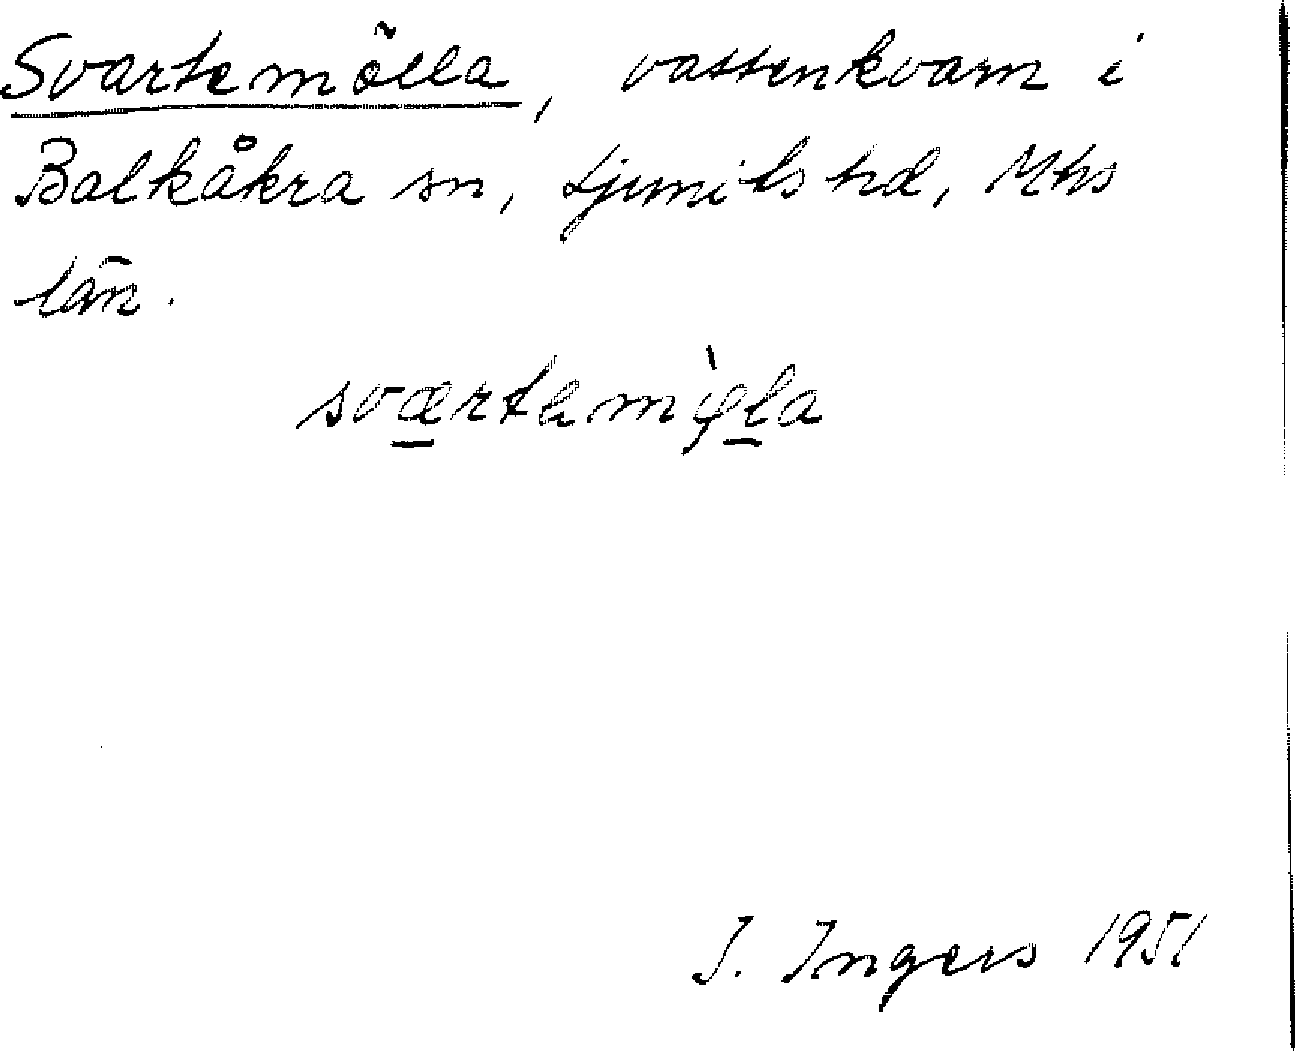 Svartemölla, vattenkvarn i
Balkåkra sn, Ljunits hd, Mhs
län.
sværtemø̀la
I. Ingers 1951